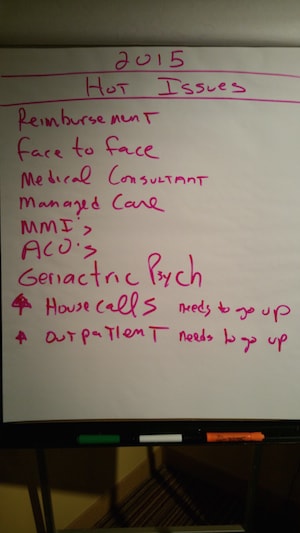 2015
Hot Issues
Reimbursement
Face to Face
Medical Consultant
Managed Care
MMI's
ACO's
Geriactric Psych
↑ Housecalls needs to go up
↑ outpatient needs to go up